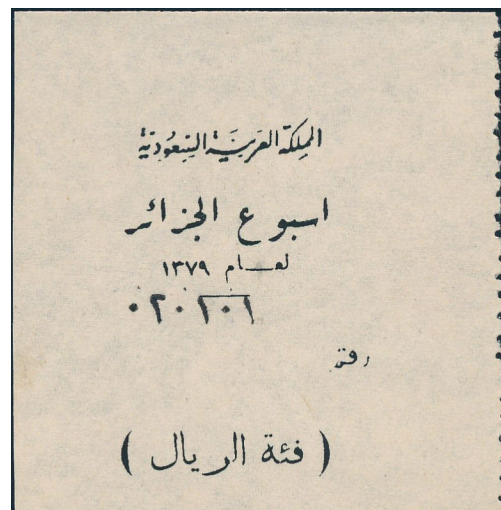 المملكة العربية السعودية
اسبوع الجزائر
لعام ١٣٧٩
رقم
( فئة الريال )